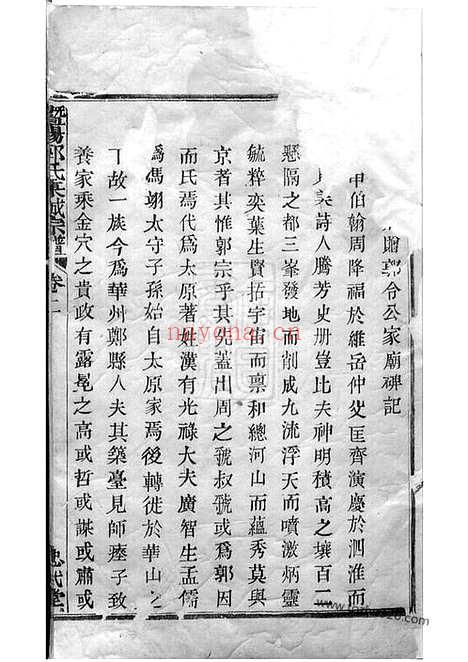 贈郭令公家廟碑記
申伯翰周降福於維岳仲父匡齊演慶於泗淮而
美詩人騰芳史册豈比夫神明積高之壤百二
懸隔之都三峯發地而削成九流浮天而噴激炳靈
毓粹奕葉生賢括宇宙而稟和總河山而蘊秀莫與
京者其惟郭宗乎其先蓋出周之虢叔虢或爲郭因
而氏焉代爲太原著姓漢有光祿大夫廣智生孟儒
爲馮翊太守子孫始自太原家焉後轉徙於華山之
下故一族今爲華州鄭縣人夫其築臺見師瘞子致
養家乘金穴之貴政有露冕之高或哲或謀或肅或
暨陽郭氏東城宗譜 卷二 忠武堂
nayona.cn